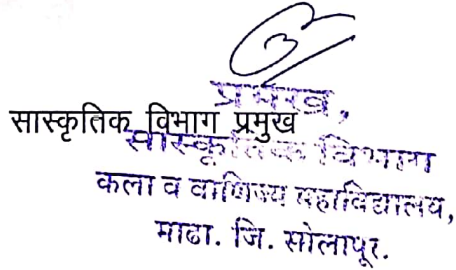 प्रमुख,
सास्कृतिक विभाग प्रमुख
सांस्कृतिक विभाग
कला व वाणिज्य महाविद्यालय,
माढा. जि. सोलापूर.